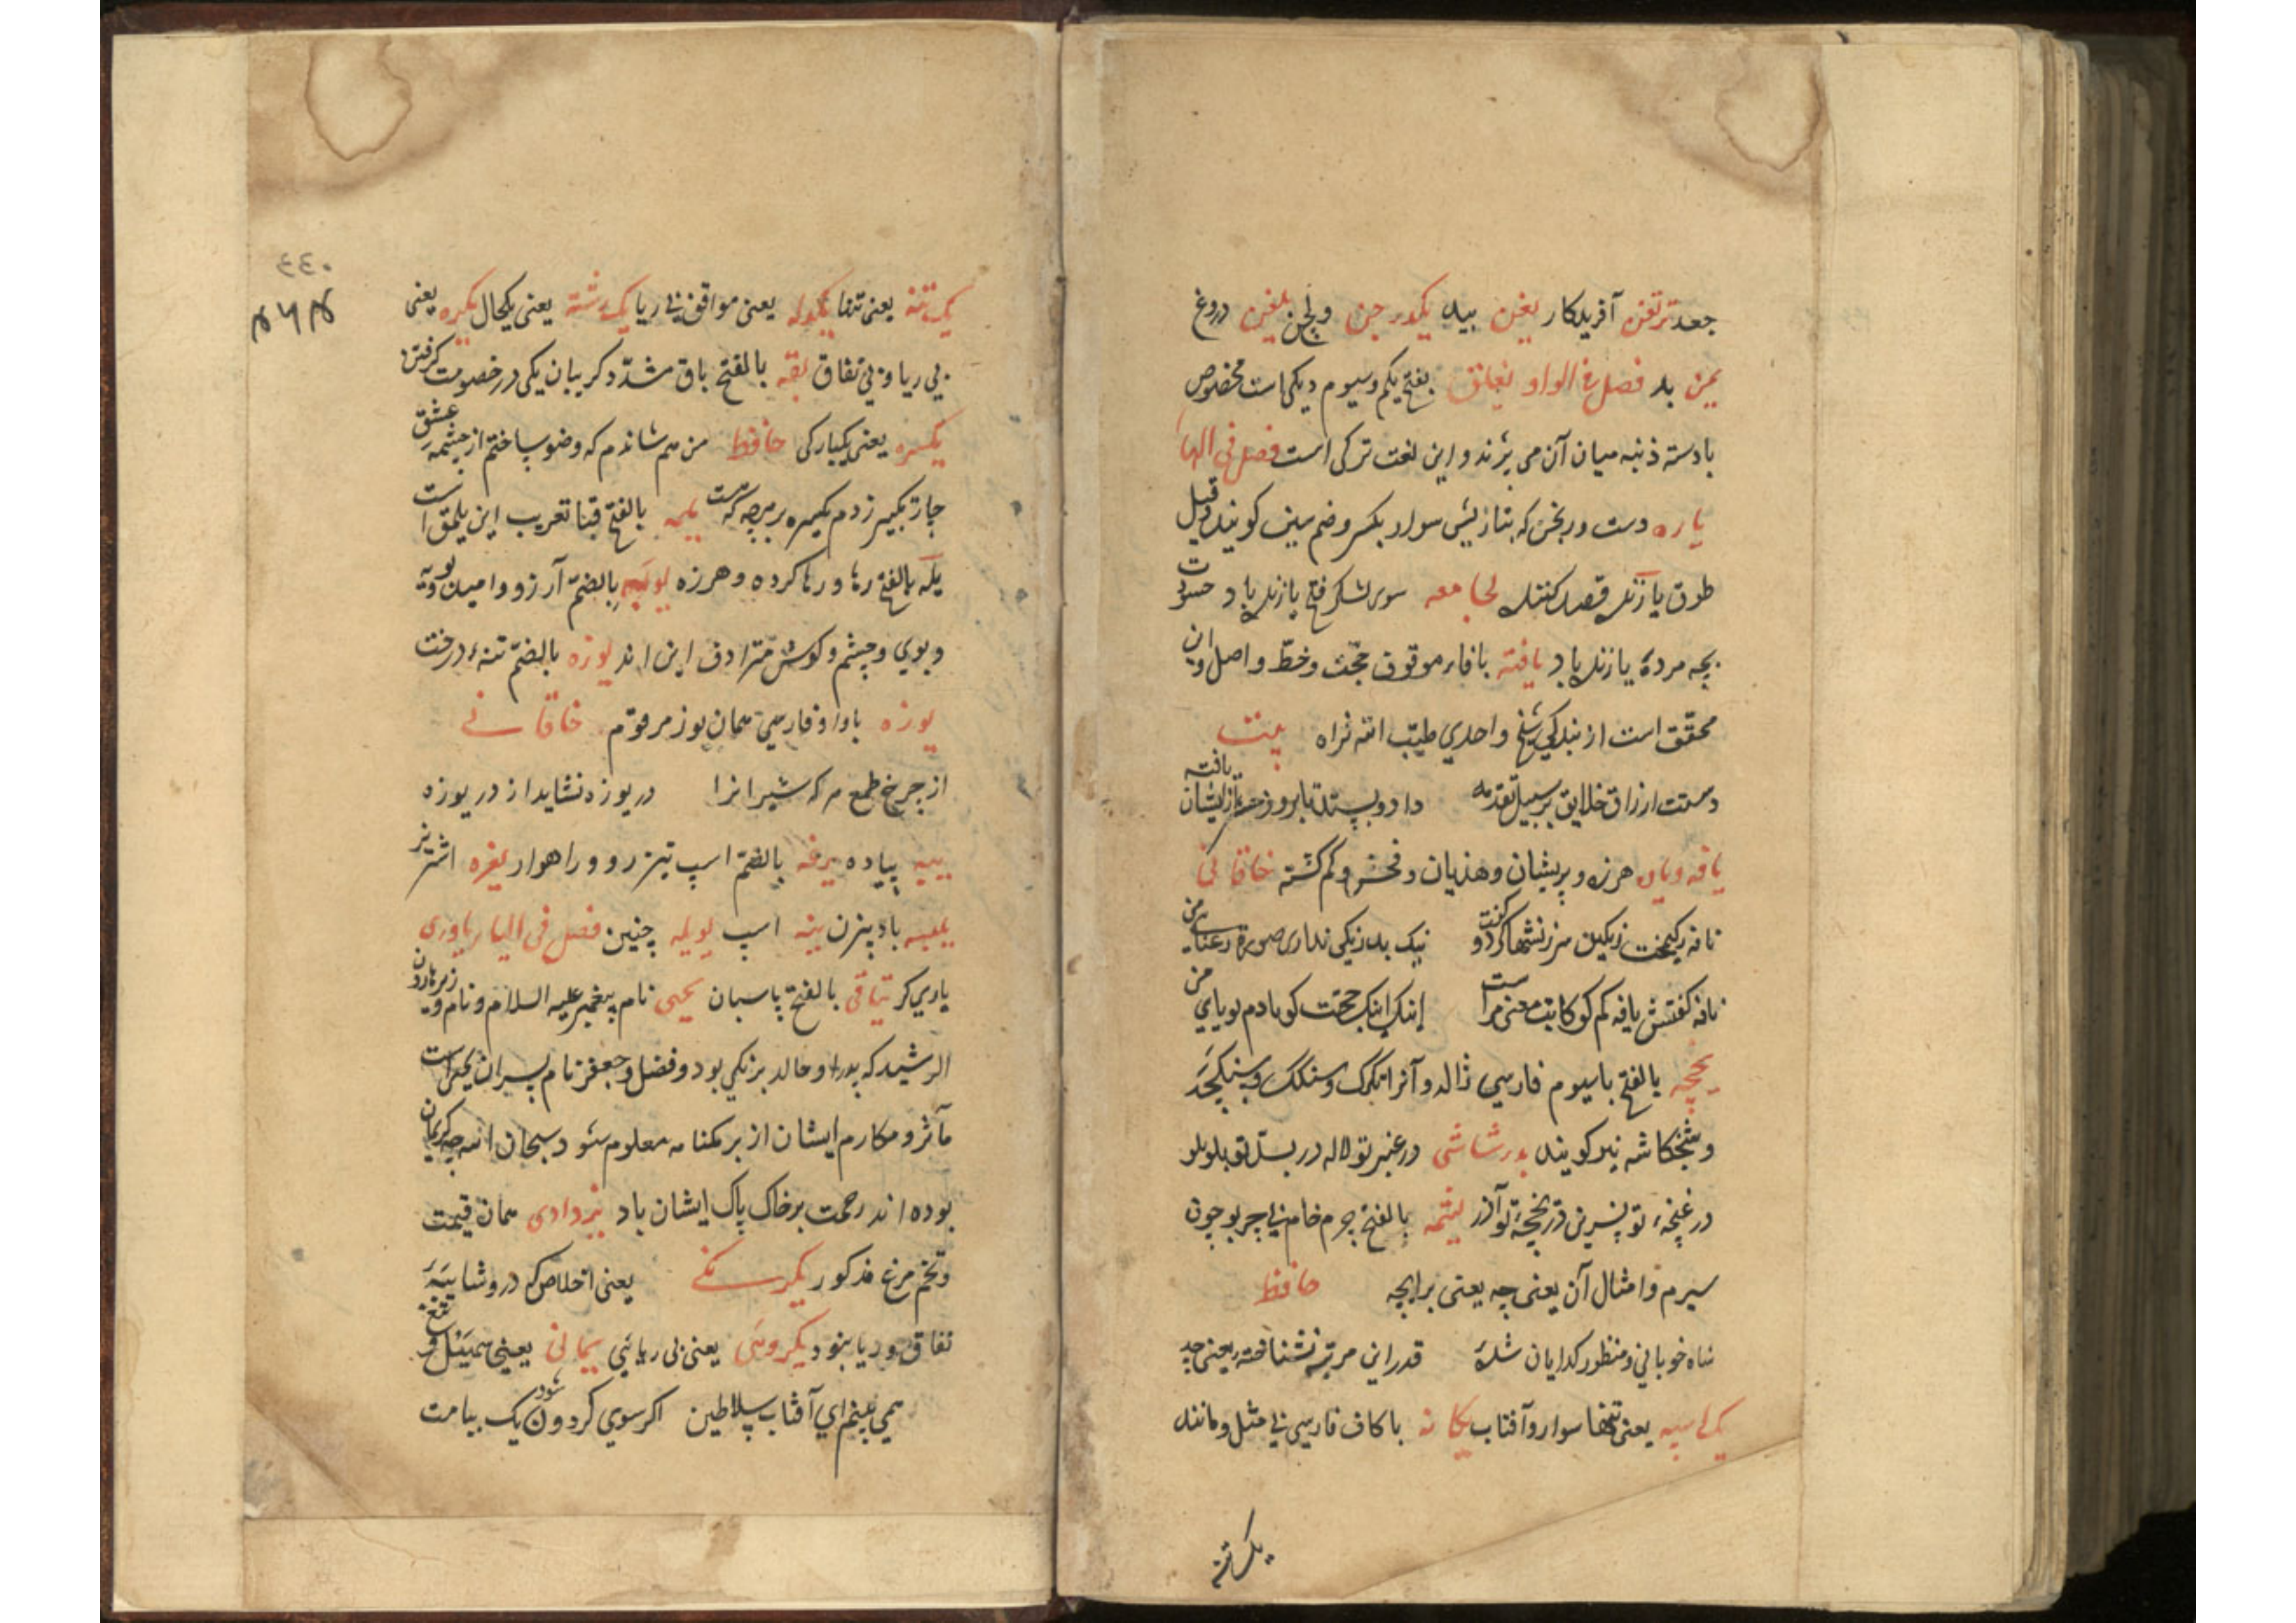 جعد ترتغن آفریدکار یغن بید یکدرجن و لجن یلغن دروغ
یمن بد فصل فی الواو یغانق بفتح یکم و سیوم دیکی است مخصوص
بادسته ذنبه میان آن می پزند و این لغت ترکی است فصل فی الها
یاره دست ورنجن که بتازیش سوار بکسر و ضم سین کویند و قیل
طوق یازنک قصد کنند لجامعه سوی لشکر فتح یازنک باد حسرت
بچه مرده یازنک باد یافته بافاء موقوف حجّت و خطّ و اصل و این
محقّق است از بندکی شیخ واحدی طیّب الله ثراه بیت
دستت ارزاق خلایق بر سبیل تقدمه داد و بستد تا بروز حشر ازیشان یافته
یافه و یاوه هرزه و پریشان و هذیان و فحش و کم کشته خاقانی
نافه کفتش یافه کم کو کایت معنی مراست اینک اینک حجّت کویا دم بویای من
یخچه بالفتح باسیوم فارسی ژاله و آنرا تکرک و سنکک و سنکچه
و شخکاشه نیز کویند بدر شاشی در عنبر تو لاله در بسّد تو لولو
در غنچهٔ تو نسرین در یخچهٔ تو آذر یشمه بالفتح چرم خام بی چربو چون
سیرم و امثال آن یعنی چه یعنی براچه حافظ
شاه خوبانی و منظور کدایان شدهٔ قدر این مرتبه نشناختهٔ یعنی چه
یک اسپه یعنی تنها سوار و آفتاب یکانه با کاف فارسی بی مثل و مانند
یک تنه
یک تنه یعنی تنها یکدله یعنی موافق بی ریا یک رشته یعنی یکحال یکره یعنی
بی ریا و بی نفاق یقه بالفتح باق مشدّد کریبان یکی در خصومت کرفتن
یکسره یعنی یکبارکی حافظ من هم شاندم که وضو ساختم از چشمه عشق
چار تکبیر زدم یکسره بر هرچه که هست یلمه بالفتح قبا تعریب این یلمق است
یله بالفتح رها و رها کرده و هرزه یوبه بالضمّ آرزو و امید
و بوی و چشم و کوش مترادف این اند یوزه بالضمّ تنهٔ درخت
یوزه باواو فارسی همان یوز مرقوم خاقانی
از چرخ طمع مکه شیرانرا دریوزه نشاید از در یوزه
پیاده یرغه بالضمّ اسپ تیز رو و راهوار یغره اشتر نر
بادبیزن ینه اسپ یویله چنین فصل فی الیا یاوری
یاری کر یتاقی بالفتح پاسبان یحیی نام پیغمبر علیه السلام و نام وزیر هارون
الرشید که پدر او خالد برمکی بود و فضل و جعفر نام پسران یحیی است
مآثر و مکارم ایشان از برمکنامه معلوم شود سبحان الله چه کریمان
بوده اند رحمت بر خاک پاک ایشان باد یزدادی همان قیمت
و تخم مرغ مذکور یکرنکی یعنی اخلاص که درو شایبهٔ
نفاق و ریا نبود یکروئی یعنی بی ریائی یمانی یعنی
همی بینم ای آفتاب سلاطین اکر سوی کردون شود یک پیامت